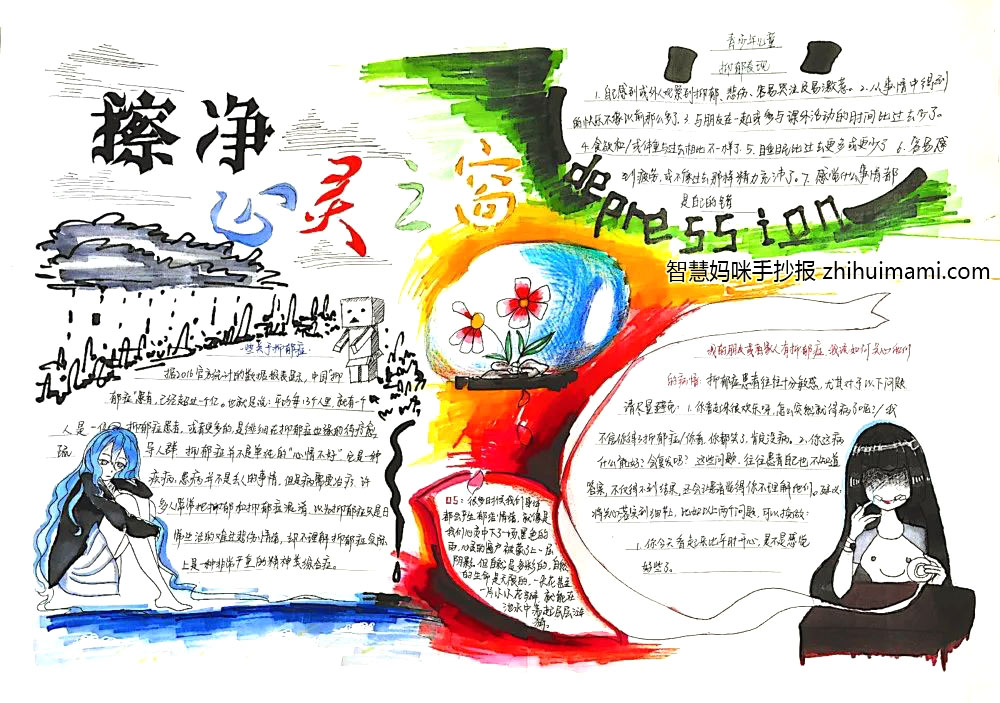 擦净
心灵之窗
青少年儿童
抑郁表现
1.自己感到或外人观察到抑郁、悲伤、容易哭泣及易激惹。2.从事情中得到
的快乐不像以前那么多了.3.与朋友在一起或参与课外活动的时间比过去少了。
4.食欲和/或体重与过去相比不一样了.5.睡眠比过去更多或更少了 6.容易感
到疲劳,或不像过去那样精力充沛了。7.感觉什么事情都
是自己的错
depression
智慧妈咪手抄报 zhihuimami.com
一些关于抑郁症.
据2016官方统计的数据报表显示,中国"抑
郁症"患者,已经超过一个亿。也就是说:平均每13个人里,就有一个
人是一位抑郁症患者,或有更多的,是徘徊在抑郁症边缘的待疗愈
人群 抑郁症并不是单纯的"心情不好"它是一种
疾病,患病并不是丢人的事情,但是病需要治疗.许
多人常常把抑郁和抑郁症混淆,以为抑郁症只是日
常生活的难过悲伤情绪,却不理解抑郁症实际
上是一种非常严重的精神类综合症。
很多时候我们身体
都会产生郁症情绪,就像是
我们心灵中下了一场黑色的
雨,心灵的窗户被蒙了上一层
阴影,但自然是多彩的,自然
的生命是无限的,一朵花甚至
一片小小花瓣,就能在
池水中荡起层层涟
漪。
我的朋友或者家人有抑郁症,我该如何关心他们
的病情:抑郁症患者往往十分敏感,尤其对于以下问题
请尽量避免:1.你看起来很欢乐呀,怎么突然就得病了呢?/我
不信你得了抑郁症/你看,你都笑了,肯定没病。2.你这病
什么能好?会复发吗?这些问题,往往患者自己也不知道
答案,不仅得不到结果,还会让患者觉得你不理解他们。建议
将关心落实到细节上,比如以上两个问题,可以换做:
1.你今天看起来比平时开心,是不是感觉
好些了。